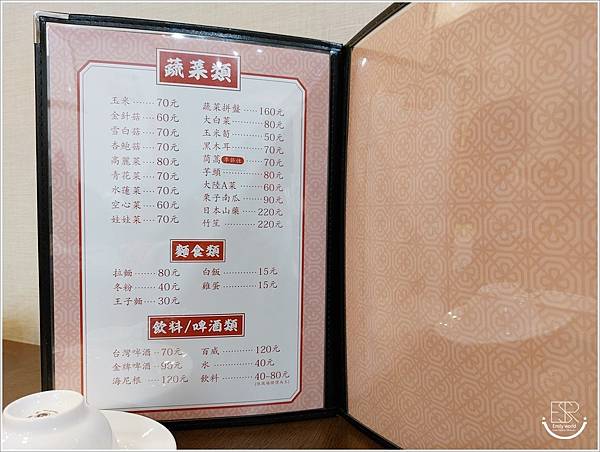 蔬菜類
玉米 ······· 70元
金針菇 ···· 60元
雪白菇 ···· 70元
杏鮑菇 ···· 70元
高麗菜 ···· 80元
青花菜 ···· 70元
水蓮菜 ···· 70元
空心菜 ···· 60元
娃娃菜 ···· 70元
蔬菜拼盤 ····· 160元
大白菜 ········ 80元
玉米筍 ········ 50元
黑木耳 ········ 70元
茼蒿 季節性 ··· 70元
芋頭 ·········· 80元
大陸A菜 ······ 60元
栗子南瓜 ····· 90元
日本山藥 ··· 220元
竹笙 ········· 220元
麵食類
拉麵 ······ 80元
冬粉 ······ 40元
王子麵 ···· 30元
白飯 ·········· 15元
雞蛋 ·········· 15元
飲料/啤酒類
台灣啤酒 ·· 70元
金牌啤酒 ·· 95元
海尼根 ···· 120元
百威 ·········· 120元
水 ············ 40元
飲料 ········ 40~80元
ESR
Emily world